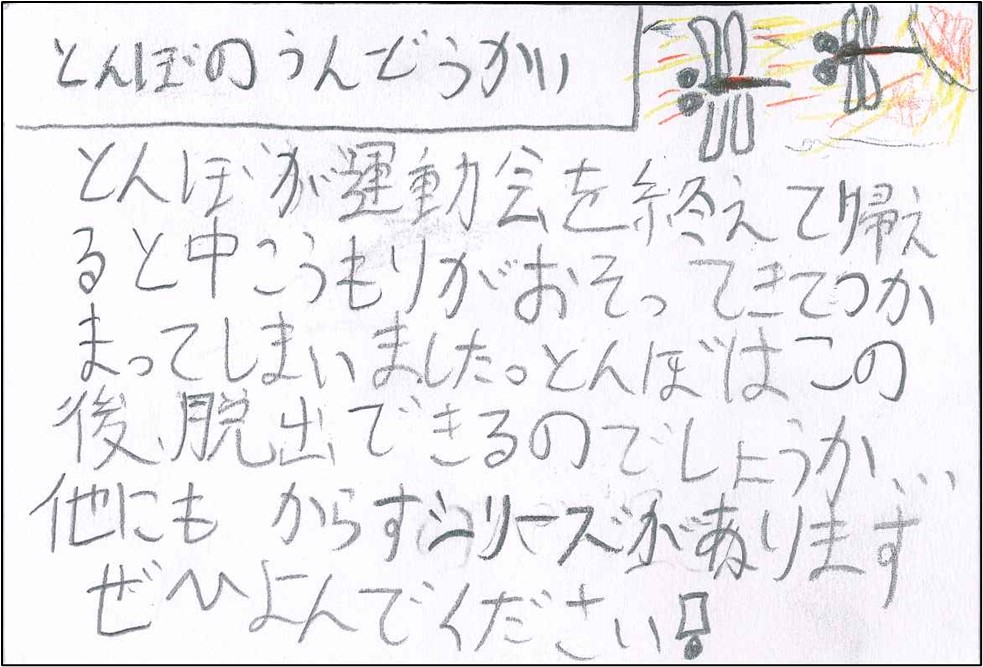 とんぼのうんどうかい
とんぼが運動会を終えて帰え
ると中こうもりがおそってきてつか
まってしまいました。とんぼはこの
後、脱出できるのでしょうか...
他にも からすシリーズがあります
ぜひよんでください!